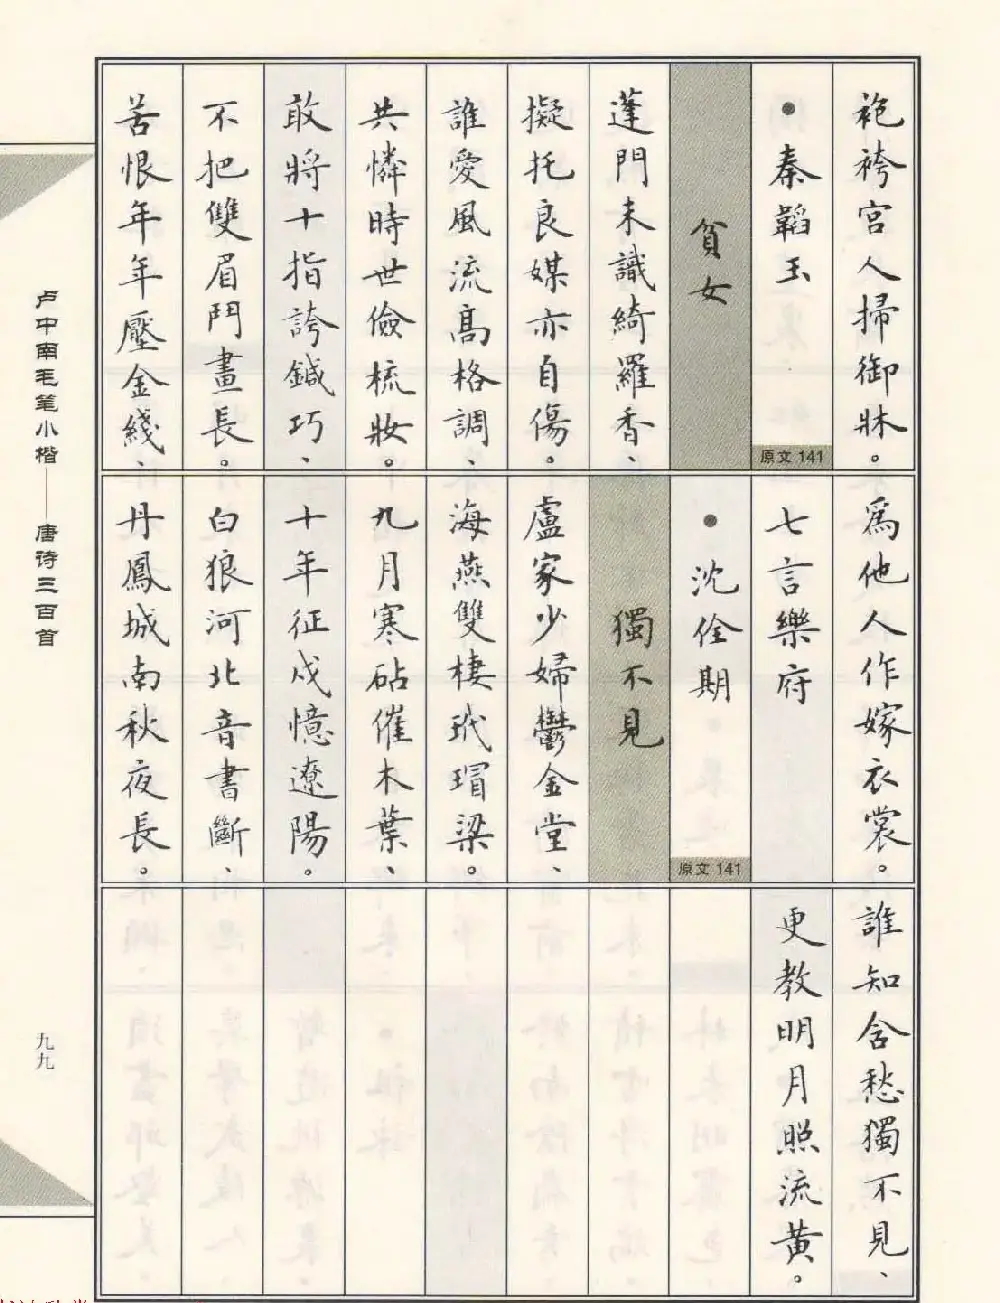 袍袴宮人掃御牀。
•秦韜玉
原文141
貧女
蓬門未識綺羅香、
擬托良媒亦自傷。
誰愛風流高格調、
共憐時世儉梳妝。
敢將十指誇鍼巧、
不把雙眉鬥畫長。
苦恨年年壓金綫、
爲他人作嫁衣裳。
七言樂府
•沈佺期
原文141
獨不見
盧家少婦鬱金堂、
海燕雙棲玳瑁梁。
九月寒砧催木葉、
十年征戍憶遼陽。
白狼河北音書斷、
丹鳳城南秋夜長。
誰知含愁獨不見、
更教明月照流黃。
卢中南毛笔小楷——唐诗三百首
九九